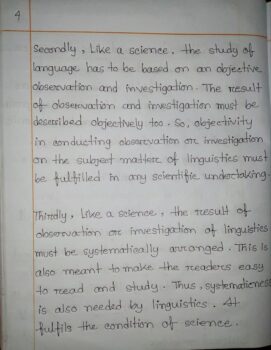 4
Secondly, Like a science, the study of
language has to be based on an objective
observation and investigation. The result
of observation and investigation must be
described objectively too. So, objectivity
in conducting observation or investigation
on the subject matter of linguistics must
be fulfilled in any scientific undertaking.
Thirdly, Like a science, the result of
observation or investigation of linguistics
must be systematically arranged. This is
also meant to make the readers easy
to read and study. Thus, systematicness
is also needed by linguistics. It
fulfils the condition of science.